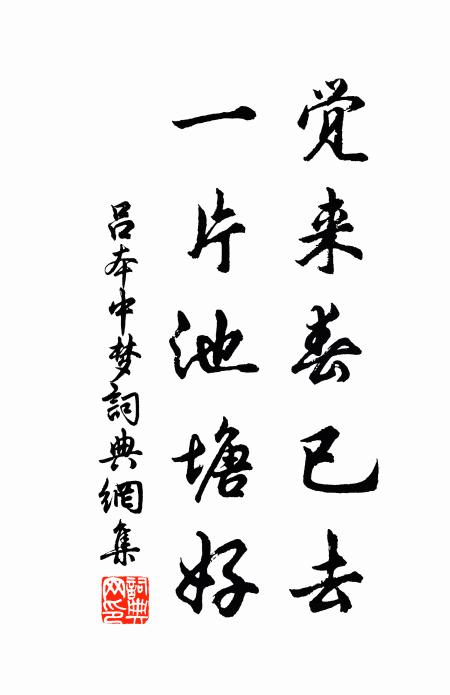 觉来春已去
一片池塘好
吕本中梦詞典網集
詞典網印